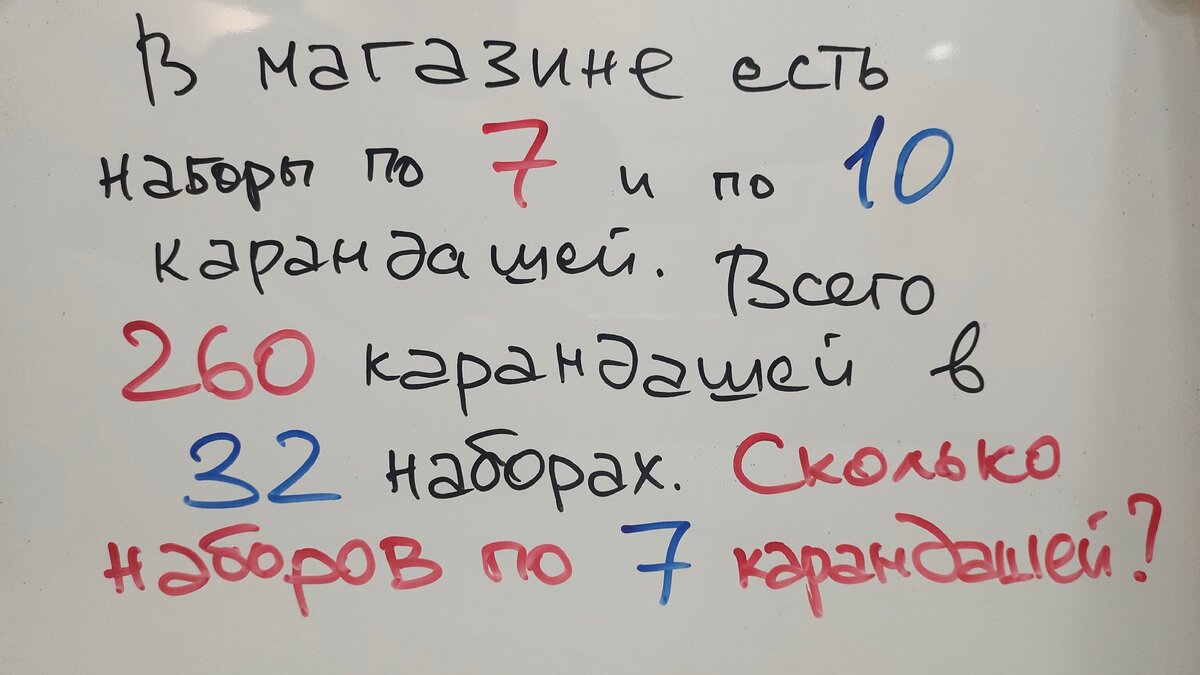 В магазине есть
наборы по 7 и по 10
карандашей. Всего
260 карандашей в
32 наборах. Сколько
наборов по 7 карандашей?